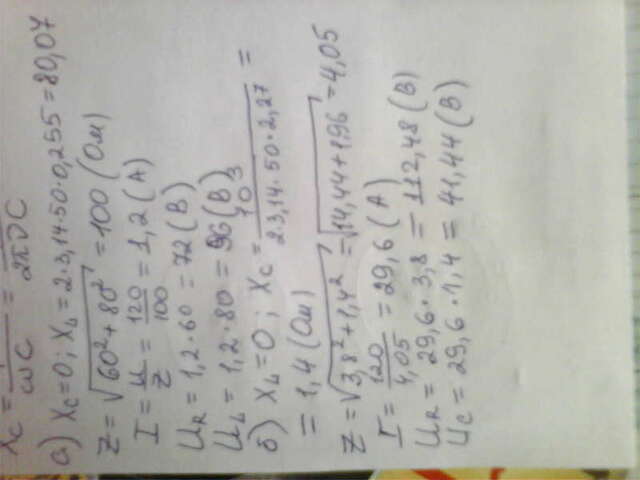 Xc = 1/ωC = 1/2πνC
а) Xc=0; X_L = 2·3,14·50·0,255=80,07
Z=√(60²+80²) =100 (Ом)
I = U/Z = 120/100 = 1,2 (A)
U_R = 1,2·60 = 72 (В)
U_L = 1,2·80 = 96 (В)
б) X_L=0; Xc = 10³/2·3,14·50·2,27 =
= 1,4 (Ом)
Z=√(3,8²+1,4²) =√(14,44+1,96) =4,05
I = 120/4,05 = 29,6 (A)
U_R = 29,6·3,8 = 112,48 (В)
U_C = 29,6·1,4 = 41,44 (В)